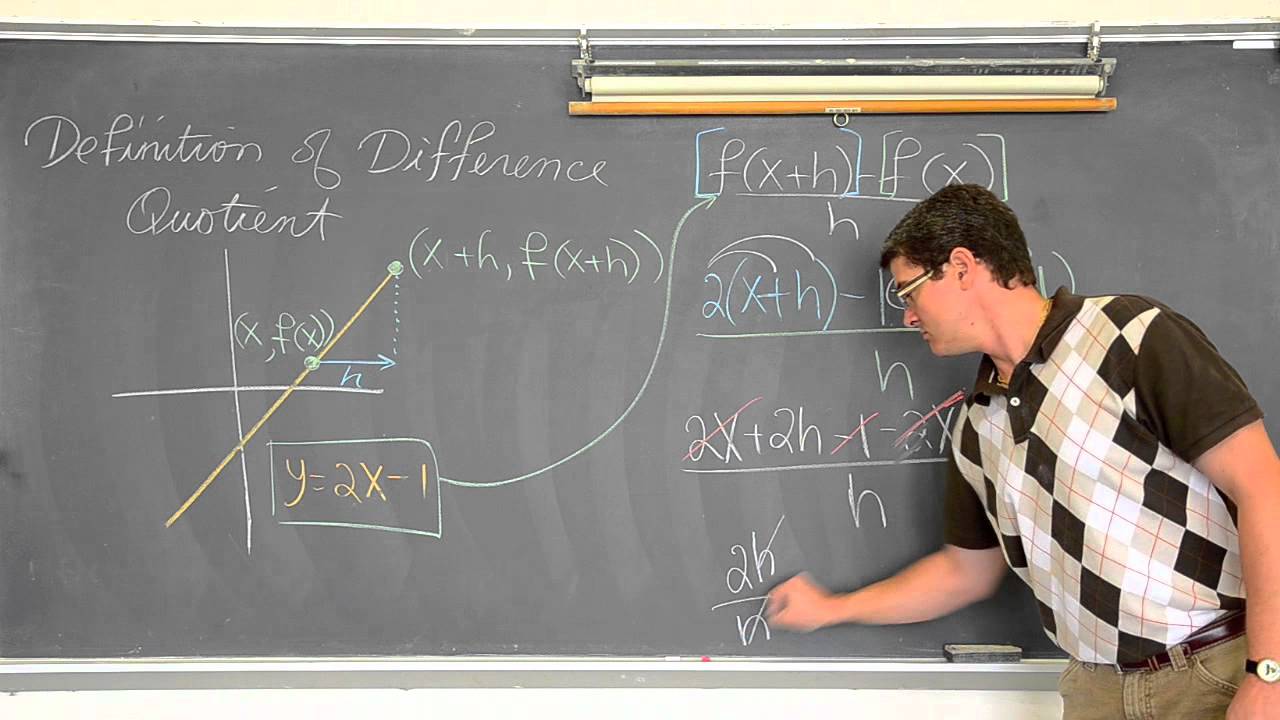 Definition of Difference
Quotient
(x+h, f(x+h))
(x, f(x))
h
y=2x-1
[f(x+h)]-[f(x)]
h
2(x+h)-1
h
2x+2h-1-2x
h
2h
h